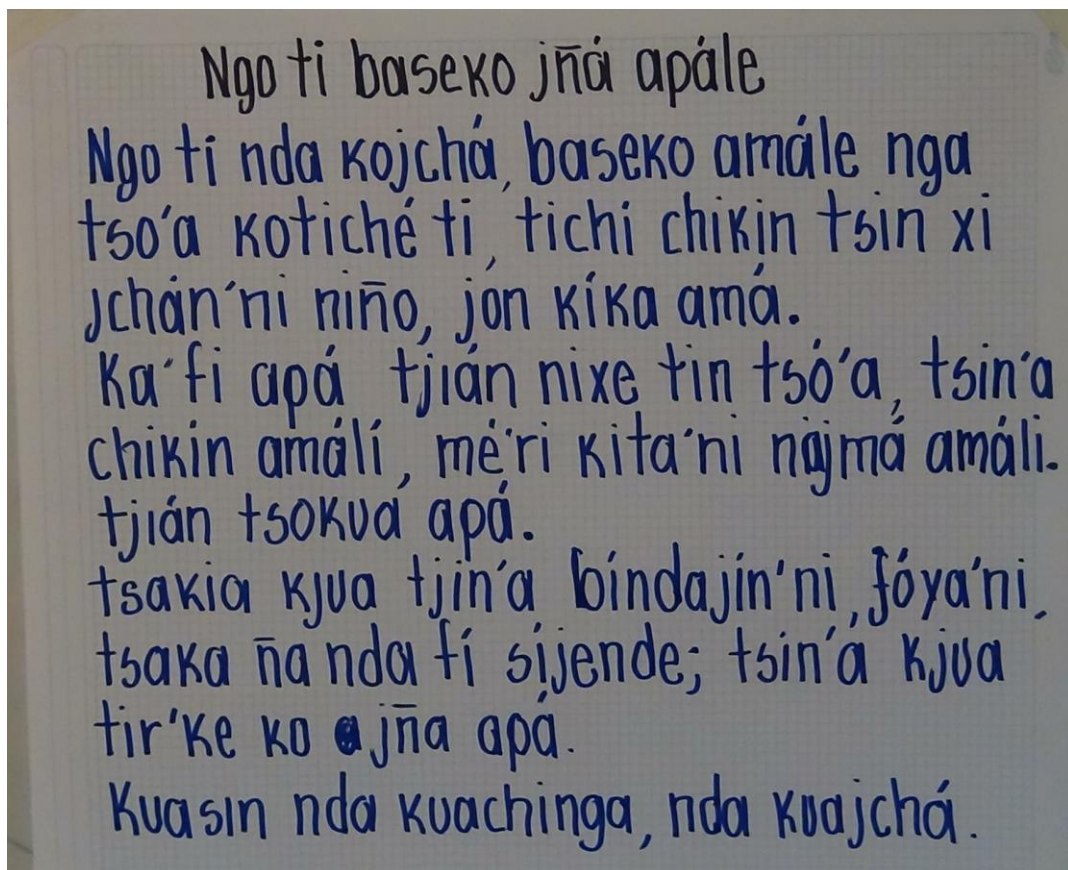 Ngo ti baseko jñá apále
Ngo ti nda kojchá, baseko amále nga
tso'a kotiché ti, tichi chikin tsin xi
jchán'ni niño, jón kíka amá.
Ka'fi apá tjián nixe tin tsó'a, tsin'a
chikín amálí, mé'ri kita'ni nájmá amáli.
tjián tsokuá apá.
tsakia kjua tjin'a bíndajín'ni, fóya'ni,
tsaka ña nda fí síjende; tsin'á kjua
tir'ke ko jña apá.
Kuasin nda kuachinga, nda kuajchá.